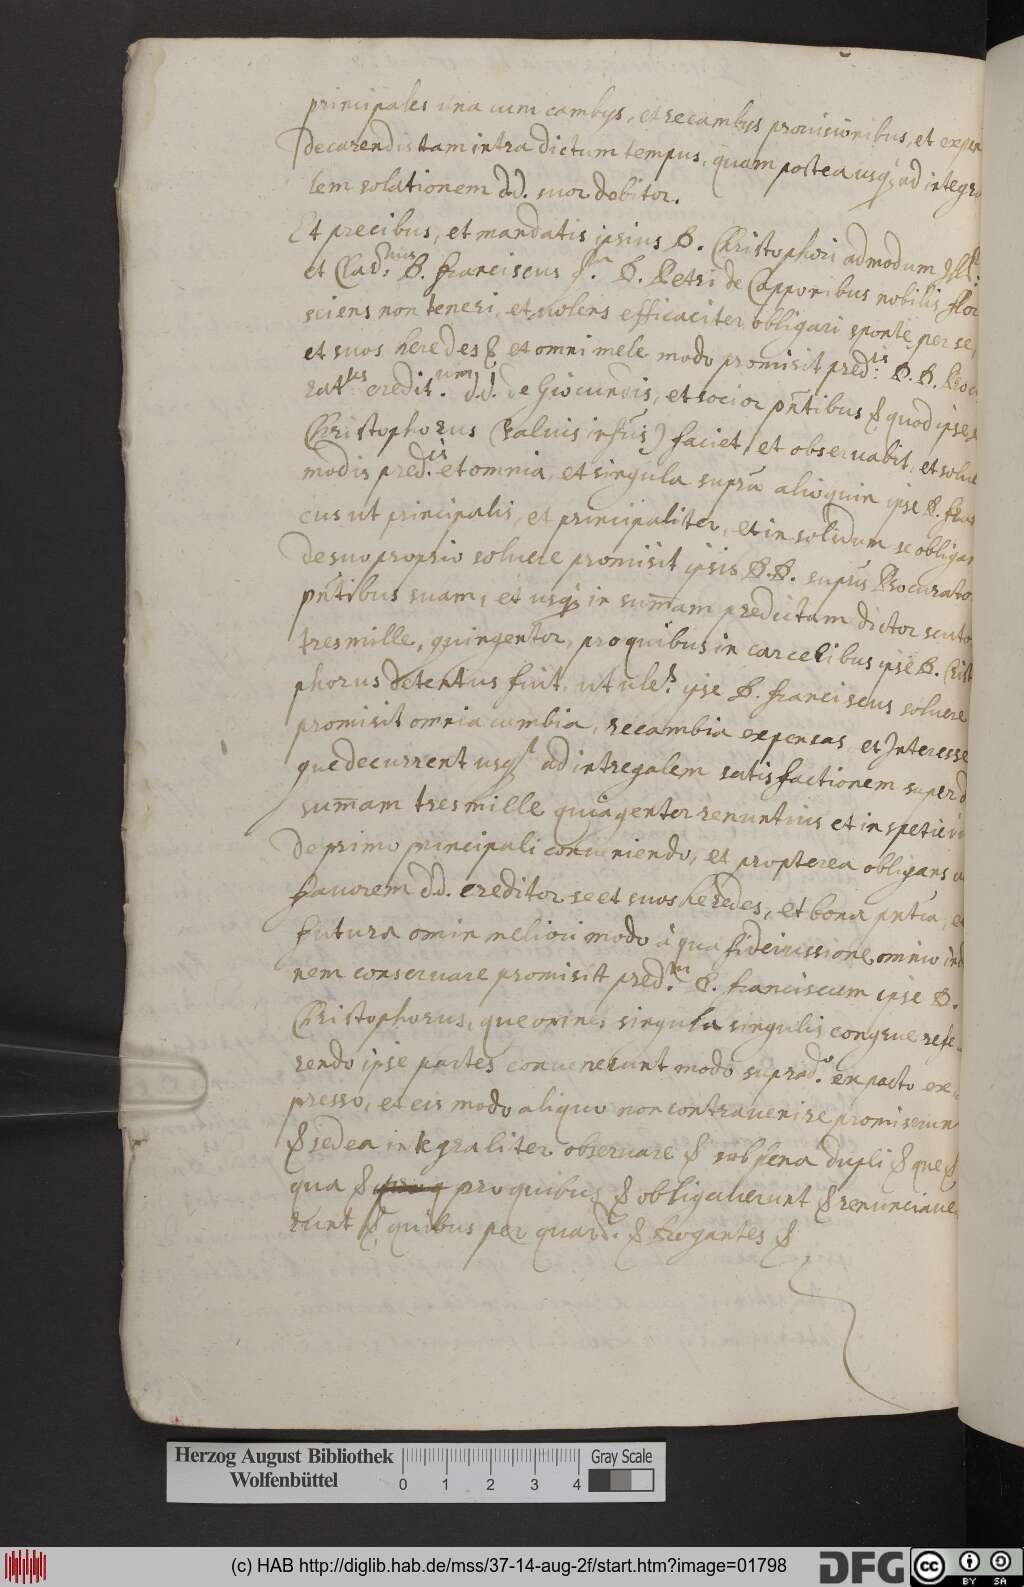 principales una cum cambijs, et recambijs provisionibus, et expen
decarendis tam intra dictum tempus, quam postea usq; ad integra
lem solationem dd. suor debitor.
Et precibus, et mandatis ipsius D. Christophori admodum Ill.
et Clar. D. Franciscus D. Petri de Capponibus nobilis Flor
sciens non teneri, et volens efficaciter obligari sponte per se,
et suos heredes & et omni mele modo promisit pred.is D.D. Procu
credit. dd. de Giocundis, et socior pntibus & quod ipse
Christophorus (salvis infris) faciet, et observabit, et solve
modis pred.is et omnia, et singula supra alioquin ipse D. Fran
cus ut principalis, et principaliter, et in solidum se obligan
de suo proprio solvere promisit ipsis D.D. supris Procurato
pntibus suam, et usq; in sumam predictam dictor scuto
tresmille, quingentor, pro quibus in carcelibus ipse D. Crist
phorus detentus fuit, ut ipse D. Franciscus solvere
promisit omnia cambia, recambia expensas, et Interesse
que decurrent usq; ad integralem satisfactionem super d
sumam tresmille quingentor renuntius et in spetie
de primo principali conveniendo, et propterea obligans
favorem dd. creditor se et suos heredes, et bona pntia, e
futura omin meliori modo à qua fideiussione omnino ind
nem conservare promisit pred.um D. Franciscum ipse D.
Christophorus, que omnes singula singulis congrue refe-
rendo ipse partes convenerunt modo suprad.o ex pacto ex-
presso, et eis modo aliquo non contravenire promiserun
& sed ea integraliter observare & sub pena dupli & que &
qua & pro quibus & obligaverunt & renunciave
runt & quibus per quar. & Rogantes &
Herzog August Bibliothek
Wolfenbüttel
0 1 2 3 4
Gray Scale
(c) HAB http://diglib.hab.de/mss/37-14-aug-2f/start.htm?image=01798
DFG
cc BY SA